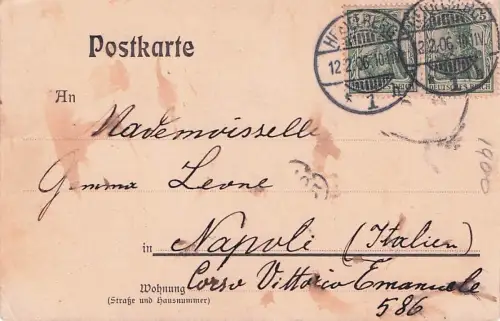 Postkarte
HEIDELBERG
12.2.06. 10
1
DEUTSCHES REICH
An
Mademoiselle
Gemma Leone
in Napoli (Italien)
Wohnung Corso Vittorio Emanuele
(Straße und Hausnummer)
586
1900